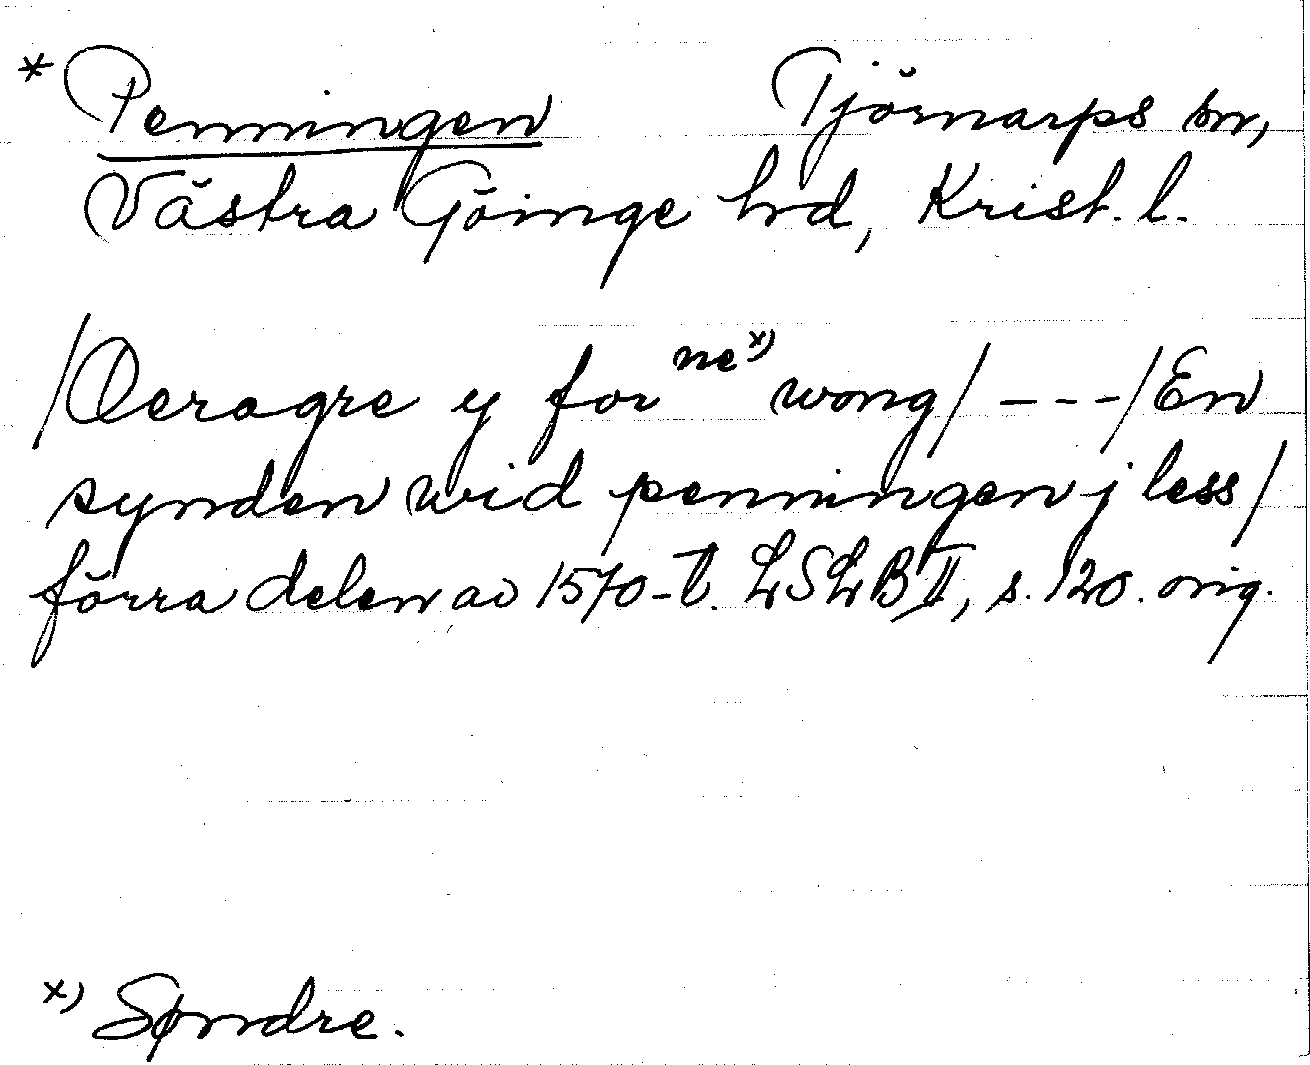 * Penningen Tjörnarps sn,
Västra Göinge hrd, Krist. l.
/Oeragre y for ne x) wong/ ---/En
synden wid penningen j less/
förra delen av 1570-t. LSLB II, s. 120. orig.
x) Søndre.